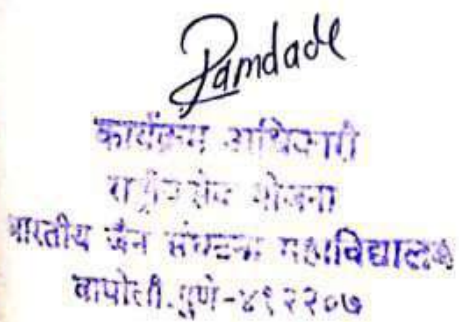 Pamdade
कार्यक्रम अधिकारी
राष्ट्रीय सेवा योजना
भारतीय जैन संघटना महाविद्यालय
वाघोली.पुणे-४१२२०७